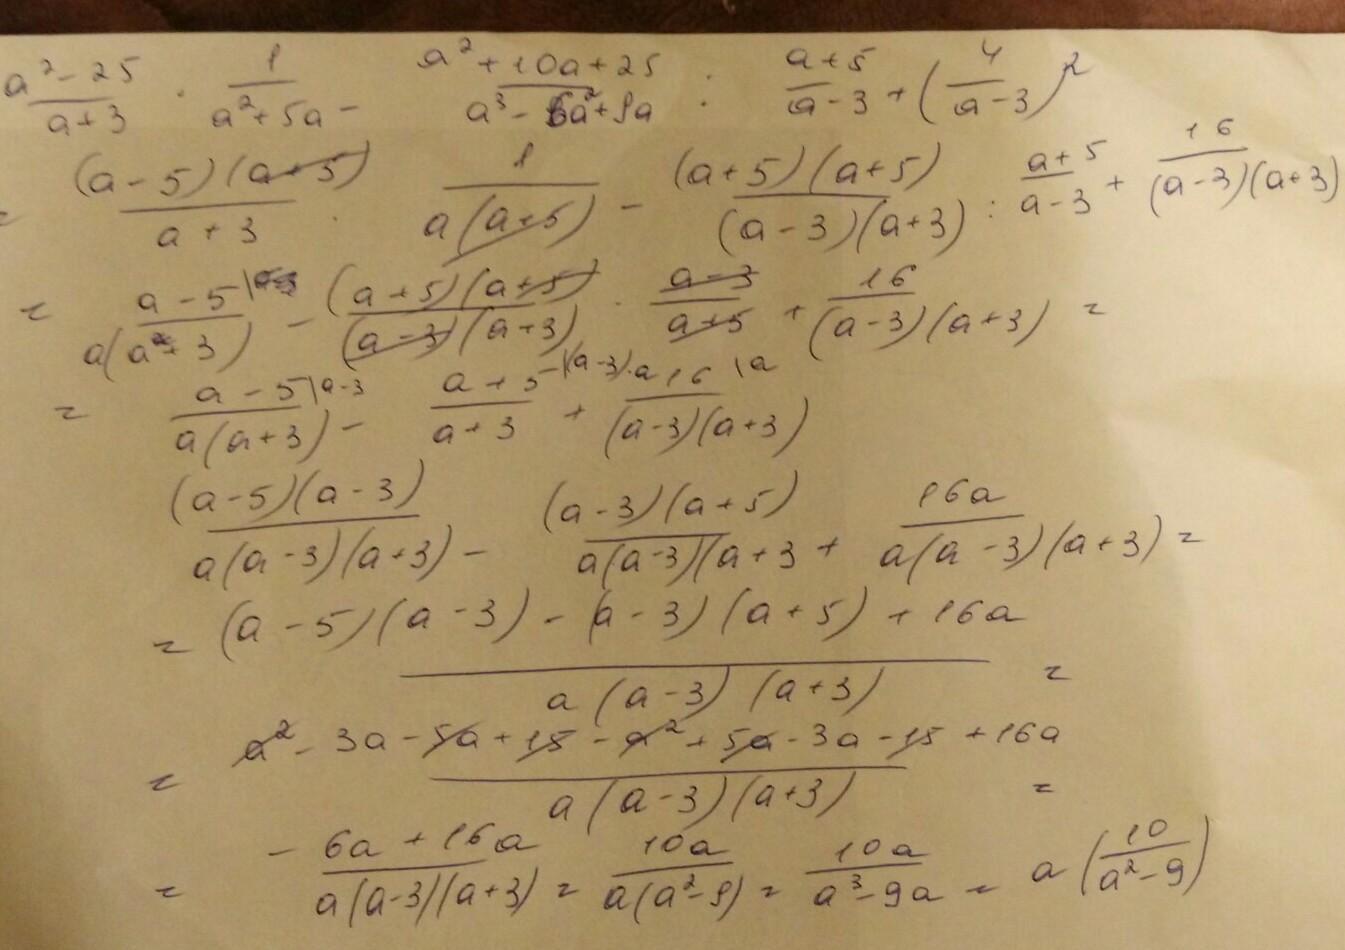 (a²-25)/(a+3) · 1/(a²+5a) - (a²+10a+25)/(a³-6a²+9a) : (a+5)/(a-3) + (4/(a-3))²
= ((a-5)(a+5))/(a+3) · 1/(a(a+5)) - ((a+5)(a+5))/((a-3)(a+3)) : (a+5)/(a-3) + 16/((a-3)(a+3))
= (a-5)/(a(a+3)) - ((a+5)(a+5))/((a-3)(a+3)) · (a-3)/(a+5) + 16/((a-3)(a+3)) =
= (a-5|a-3)/(a(a+3)) - (a+5|(a-3)·a)/(a+3) + (16|a)/((a-3)(a+3))
((a-5)(a-3))/(a(a-3)(a+3)) - ((a-3)(a+5))/(a(a-3)(a+3) + (16a)/(a(a-3)(a+3)) =
= ((a-5)(a-3)-(a-3)(a+5)+16a)/(a(a-3)(a+3)) =
= (a²-3a-5a+15-a²+5a-3a-15+16a)/(a(a-3)(a+3)) =
= (-6a+16a)/(a(a-3)(a+3)) = (10a)/(a(a²-9)) = (10a)/(a³-9a) = a(10/(a²-9))